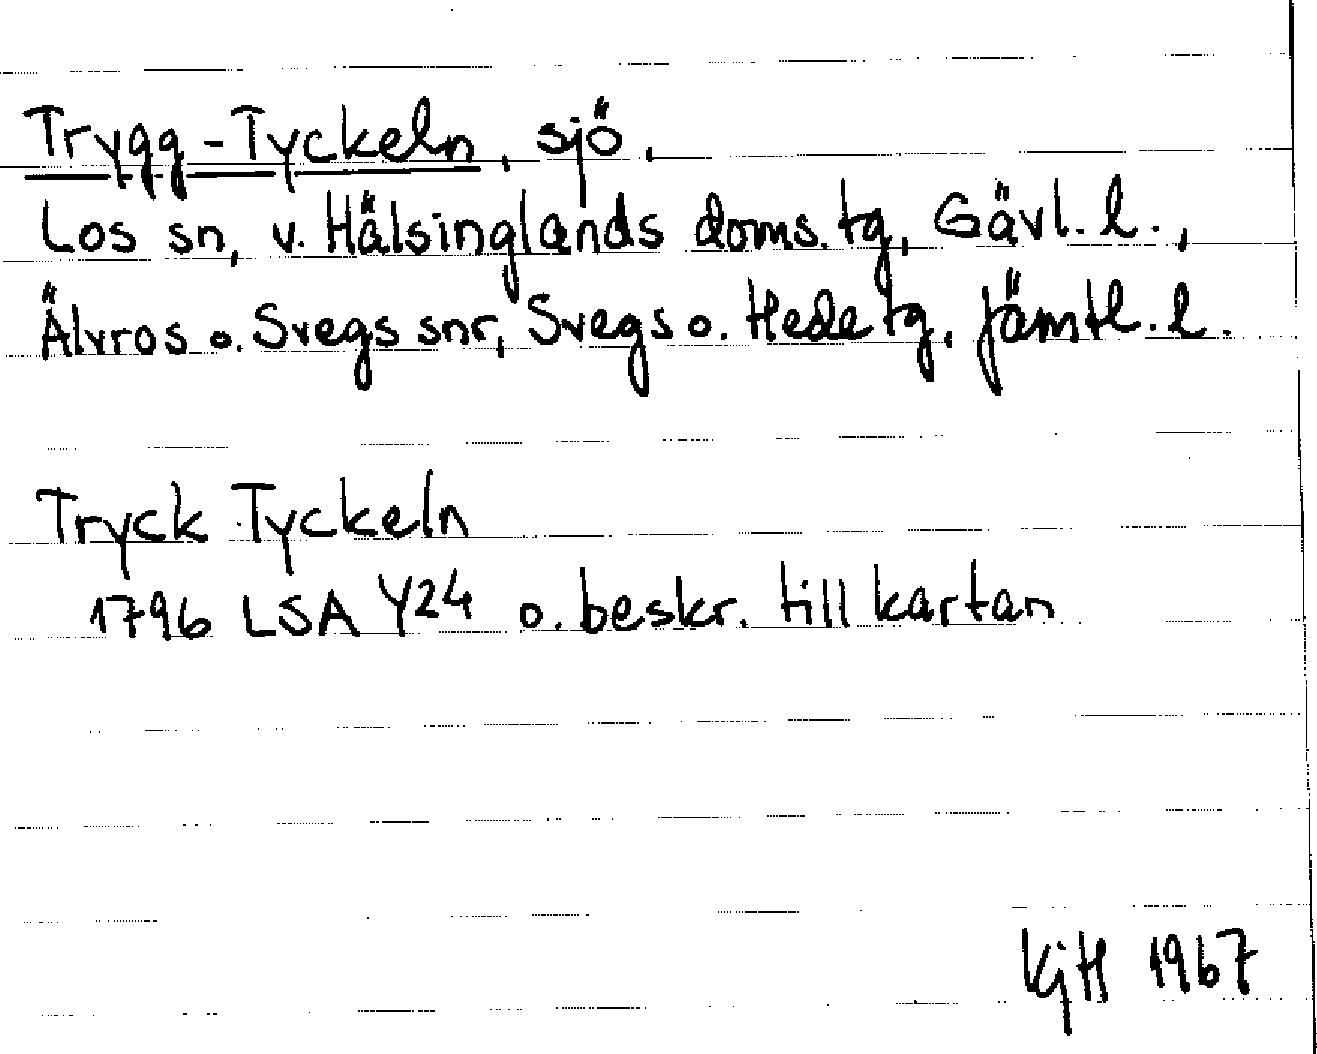 Trygg-Tyckeln, sjö.
Los sn, v. Hälsinglands doms. tg, Gävl. l.,
Älvros o. Svegs snr, Svegs o. Hede tg. Jämtl. l.
Tryck Tyckeln
1796 LSA Y24 o. beskr. till kartan
KjH 1967